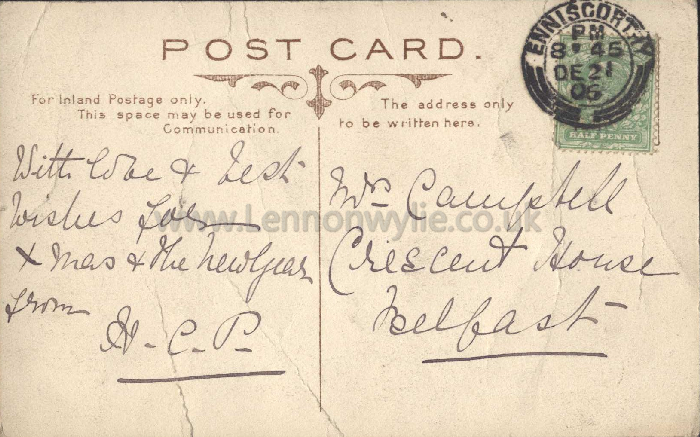 POST CARD.
For Inland Postage only.
This space may be used for
Communication.
The address only
to be written here.
ENNISCORTHY
PM
8 45
DE 21
06
HALF PENNY
With love & best
wishes for
Xmas & the New Year
from
H-C-P-
Mrs Campbell
Crescent House
Belfast
www.Lennonwylie.co.uk